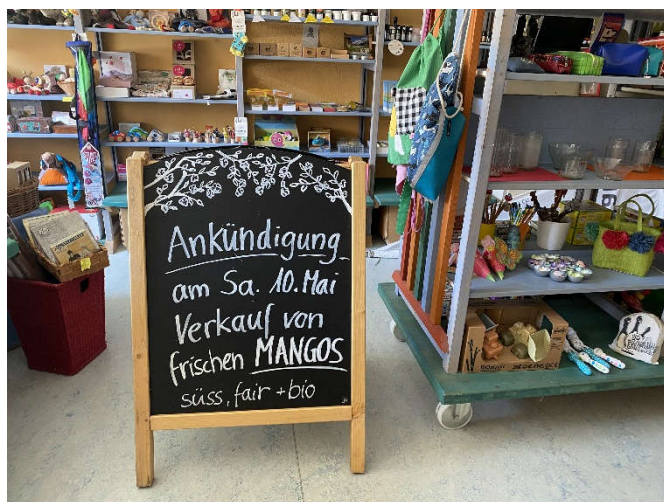 Ankündigung
am Sa. 10. Mai
Verkauf von
frischen MANGOS
süss, fair + bio